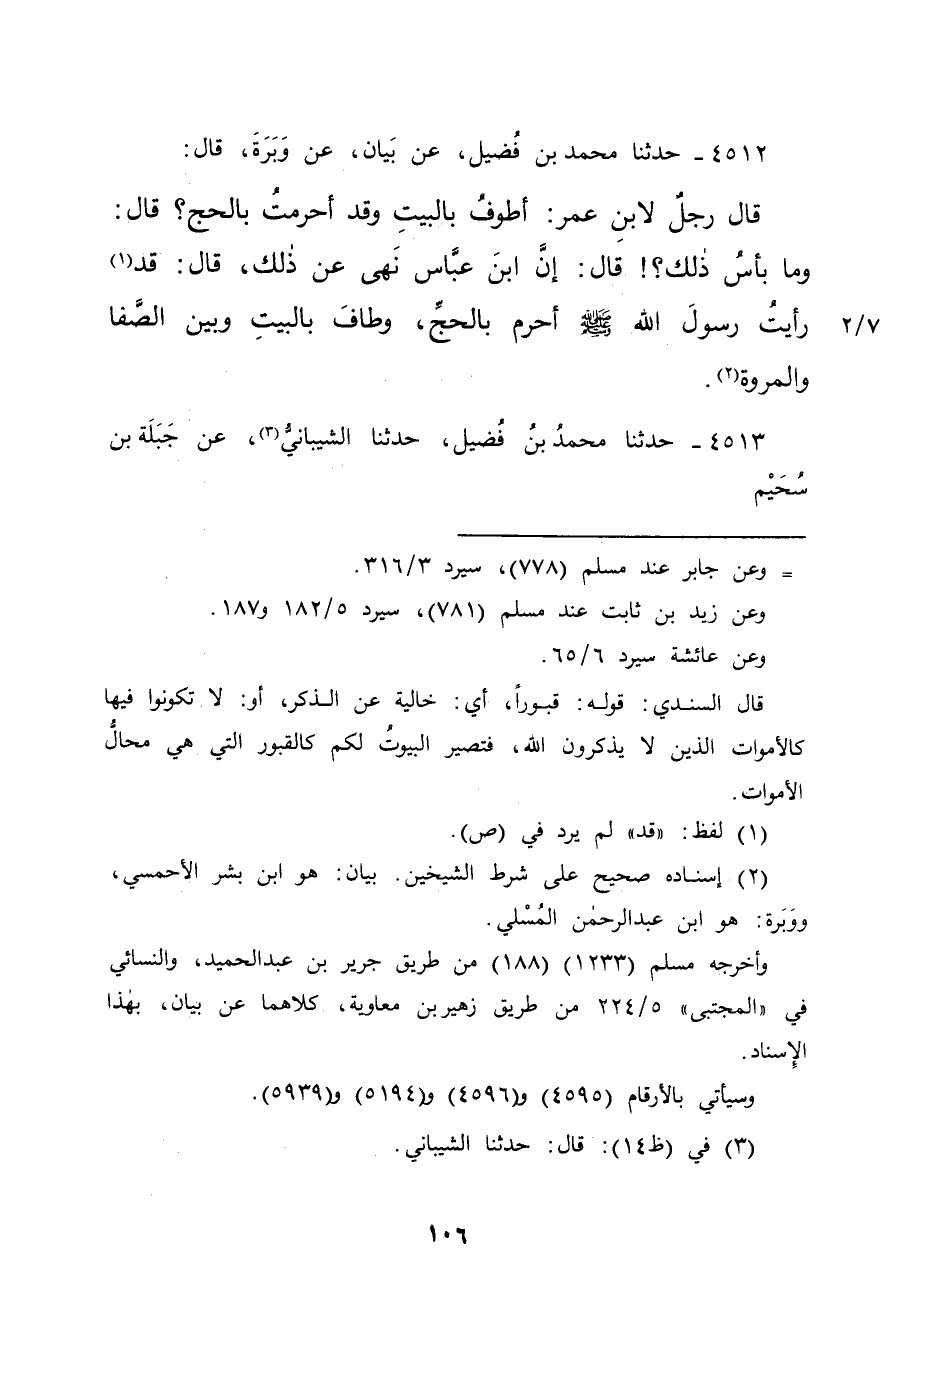 ٤٥١٢ ـ حدثنا محمد بن فُضيل، عن بَيان، عن وَبَرَةَ، قال:
قال رجلٌ لابنِ عمر: أطوفُ بالبيتِ وقد أحرمتُ بالحج؟ قال:
وما بأسُ ذٰلك؟! قال: إنَّ ابنَ عبَّاس نَهى عن ذٰلك، قال: قد(١)
رأيتُ رسولَ الله ﷺ أحرم بالحجِّ، وطافَ بالبيتِ وبين الصَّفا
٢/٧
والمروة(٢).
٤٥١٣ ـ حدثنا محمدُ بنُ فُضيل، حدثنا الشيبانيُّ(٣)، عن جَبَلَة بن
سُحَيْم
= وعن جابر عند مسلم (٧٧٨)، سيرد ٣١٦/٣.
وعن زيد بن ثابت عند مسلم (٧٨١)، سيرد ١٨٢/٥ و١٨٧.
وعن عائشة سيرد ٦٥/٦.
قال السندي: قوله: قبوراً، أي: خالية عن الذكر، أو: لا تكونوا فيها
كالأموات الذين لا يذكرون الله، فتصير البيوتُ لكم كالقبور التي هي محالُّ
الأموات.
(١) لفظ: «قد» لم يرد في (ص).
(٢) إسناده صحيح على شرط الشيخين. بيان: هو ابن بشر الأحمسي،
ووَبَرة: هو ابن عبدالرحمٰن المُسْلي.
وأخرجه مسلم (١٢٣٣) (١٨٨) من طريق جرير بن عبدالحميد، والنسائي
في «المجتبى» ٢٢٤/٥ من طريق زهير بن معاوية، كلاهما عن بيان، بهٰذا
الإِسناد.
وسيأتي بالأرقام (٤٥٩٥) و(٤٥٩٦) و(٥١٩٤) و(٥٩٣٩).
(٣) في (ظ١٤): قال: حدثنا الشيباني.
١٠٦